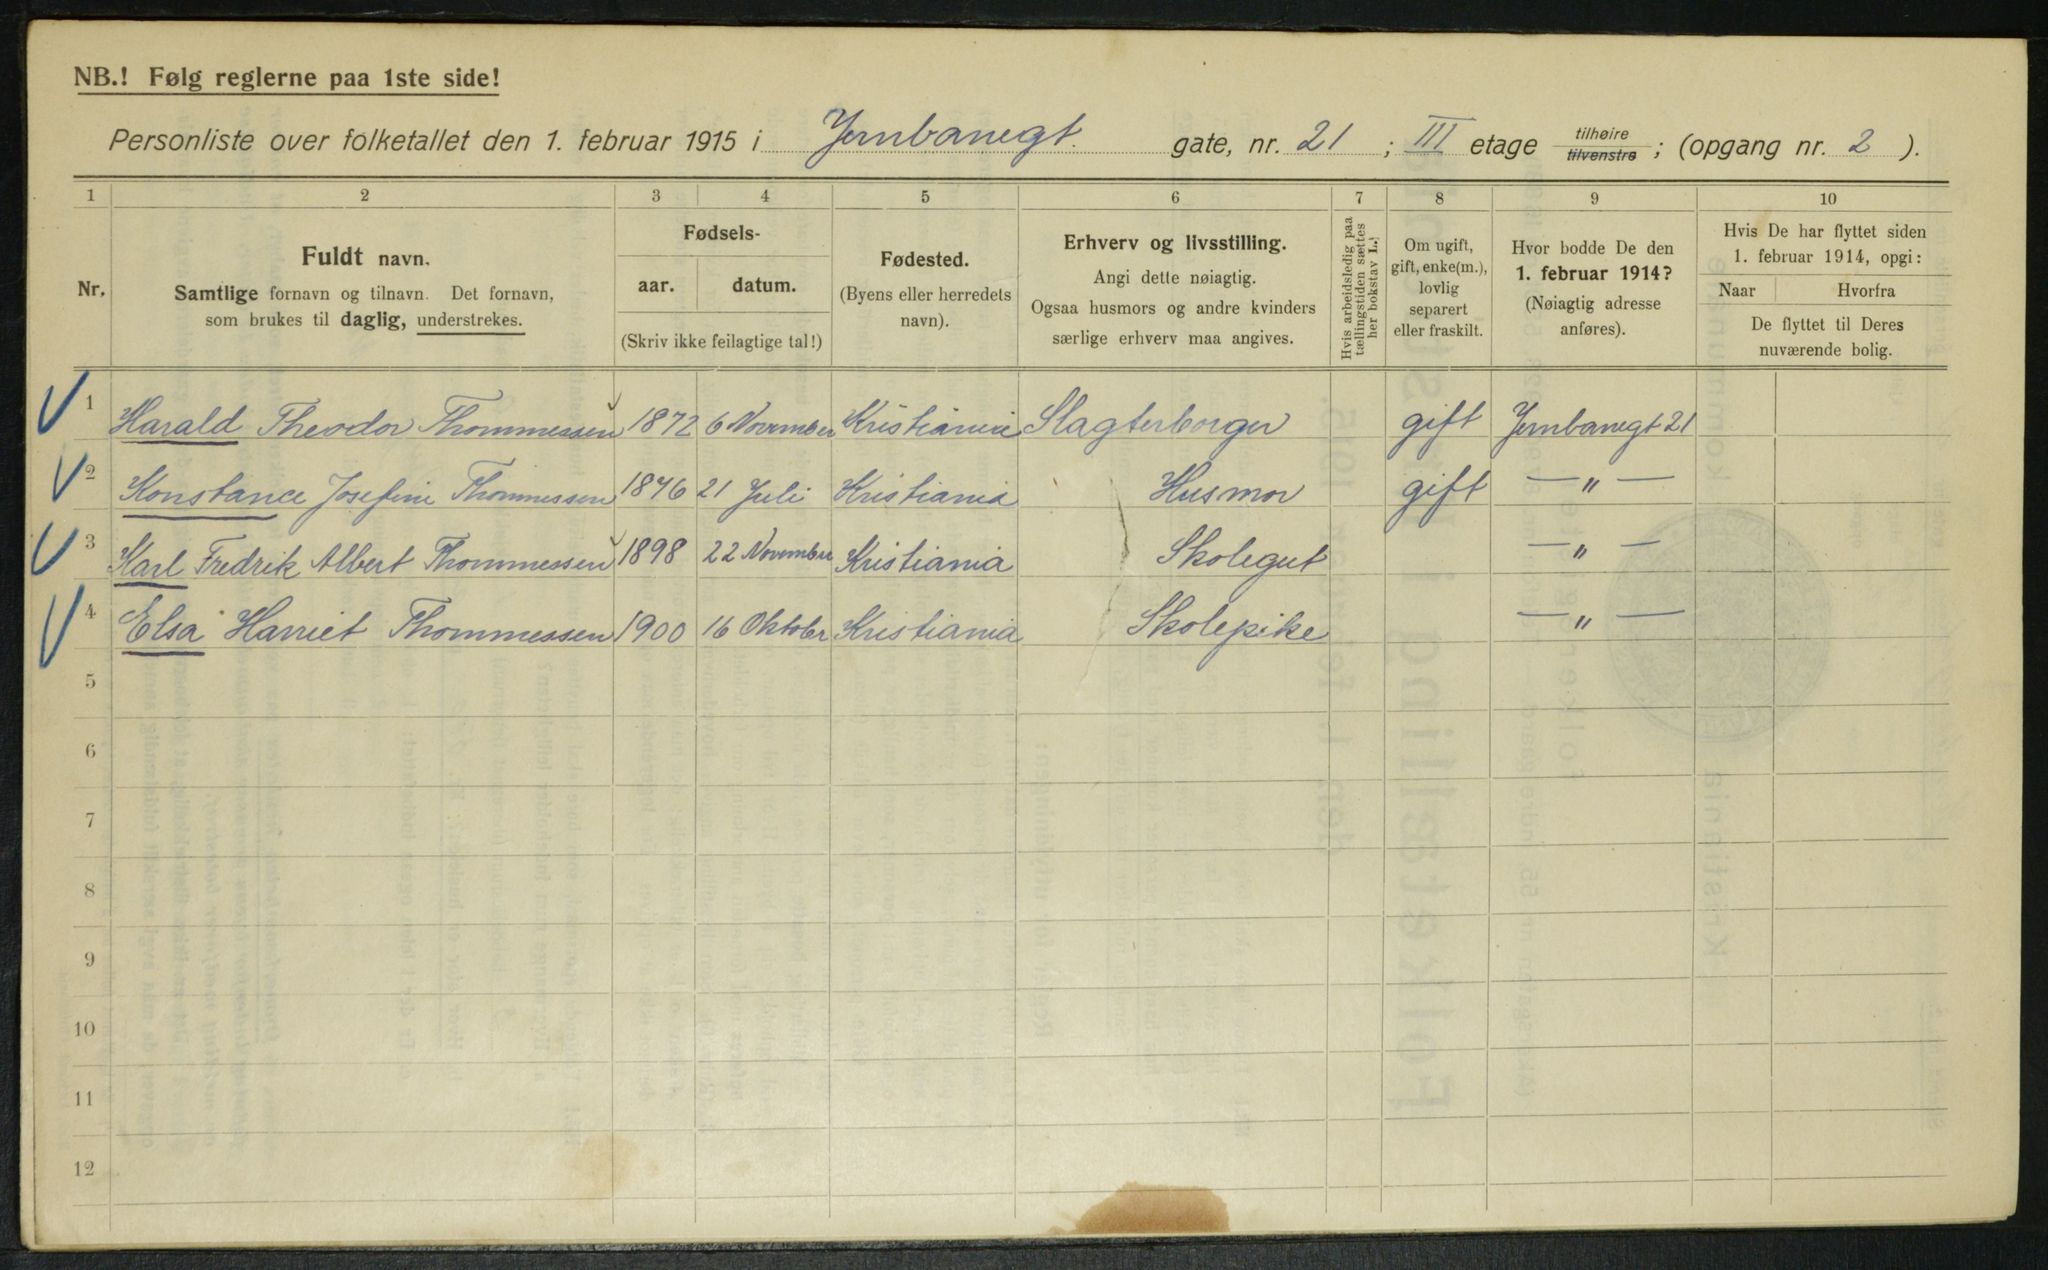 NB.! Følg reglerne paa 1ste side!
Personliste over folketallet den 1. februar 1915 i Jernbanegt. gate, nr. 21 ; III etage tilhøire tilvenstre ; (opgang nr. 2 ).
1 2 3 4 5 6 7 8 9 10
Nr. Fuldt navn. Samtlige fornavn og tilnavn. Det fornavn, som brukes til daglig, understrekes.
Fødsels- aar. datum. (Skriv ikke feilagtige tal!)
Fødested. (Byens eller herredets navn).
Erhverv og livsstilling. Angi dette nøiagtig. Ogsaa husmors og andre kvinders særlige erhverv maa angives.
Hvis arbeidsledig paa tællingstiden sættes her bokstav L.!
Om ugift, gift, enke(m.), lovlig separert eller fraskilt.
Hvor bodde De den 1. februar 1914? (Nøiagtig adresse anføres).
Hvis De har flyttet siden 1. februar 1914, opgi: Naar Hvorfra De flyttet til Deres nuværende bolig.
1 Harald Theodor Thommessen 1872 6 November Kristiania Slagterborger gift Jernbanegt 21
2 Konstance Josefine Thommessen 1876 21 Juli Kristiania Husmor gift — „ —
3 Karl Fredrik Albert Thommessen 1898 22 November Kristiania Skolegut — „ —
4 Elsa Harriet Thommessen 1900 16 Oktober Kristiania Skolepike — „ —
5
6
7
8
9
10
11
12